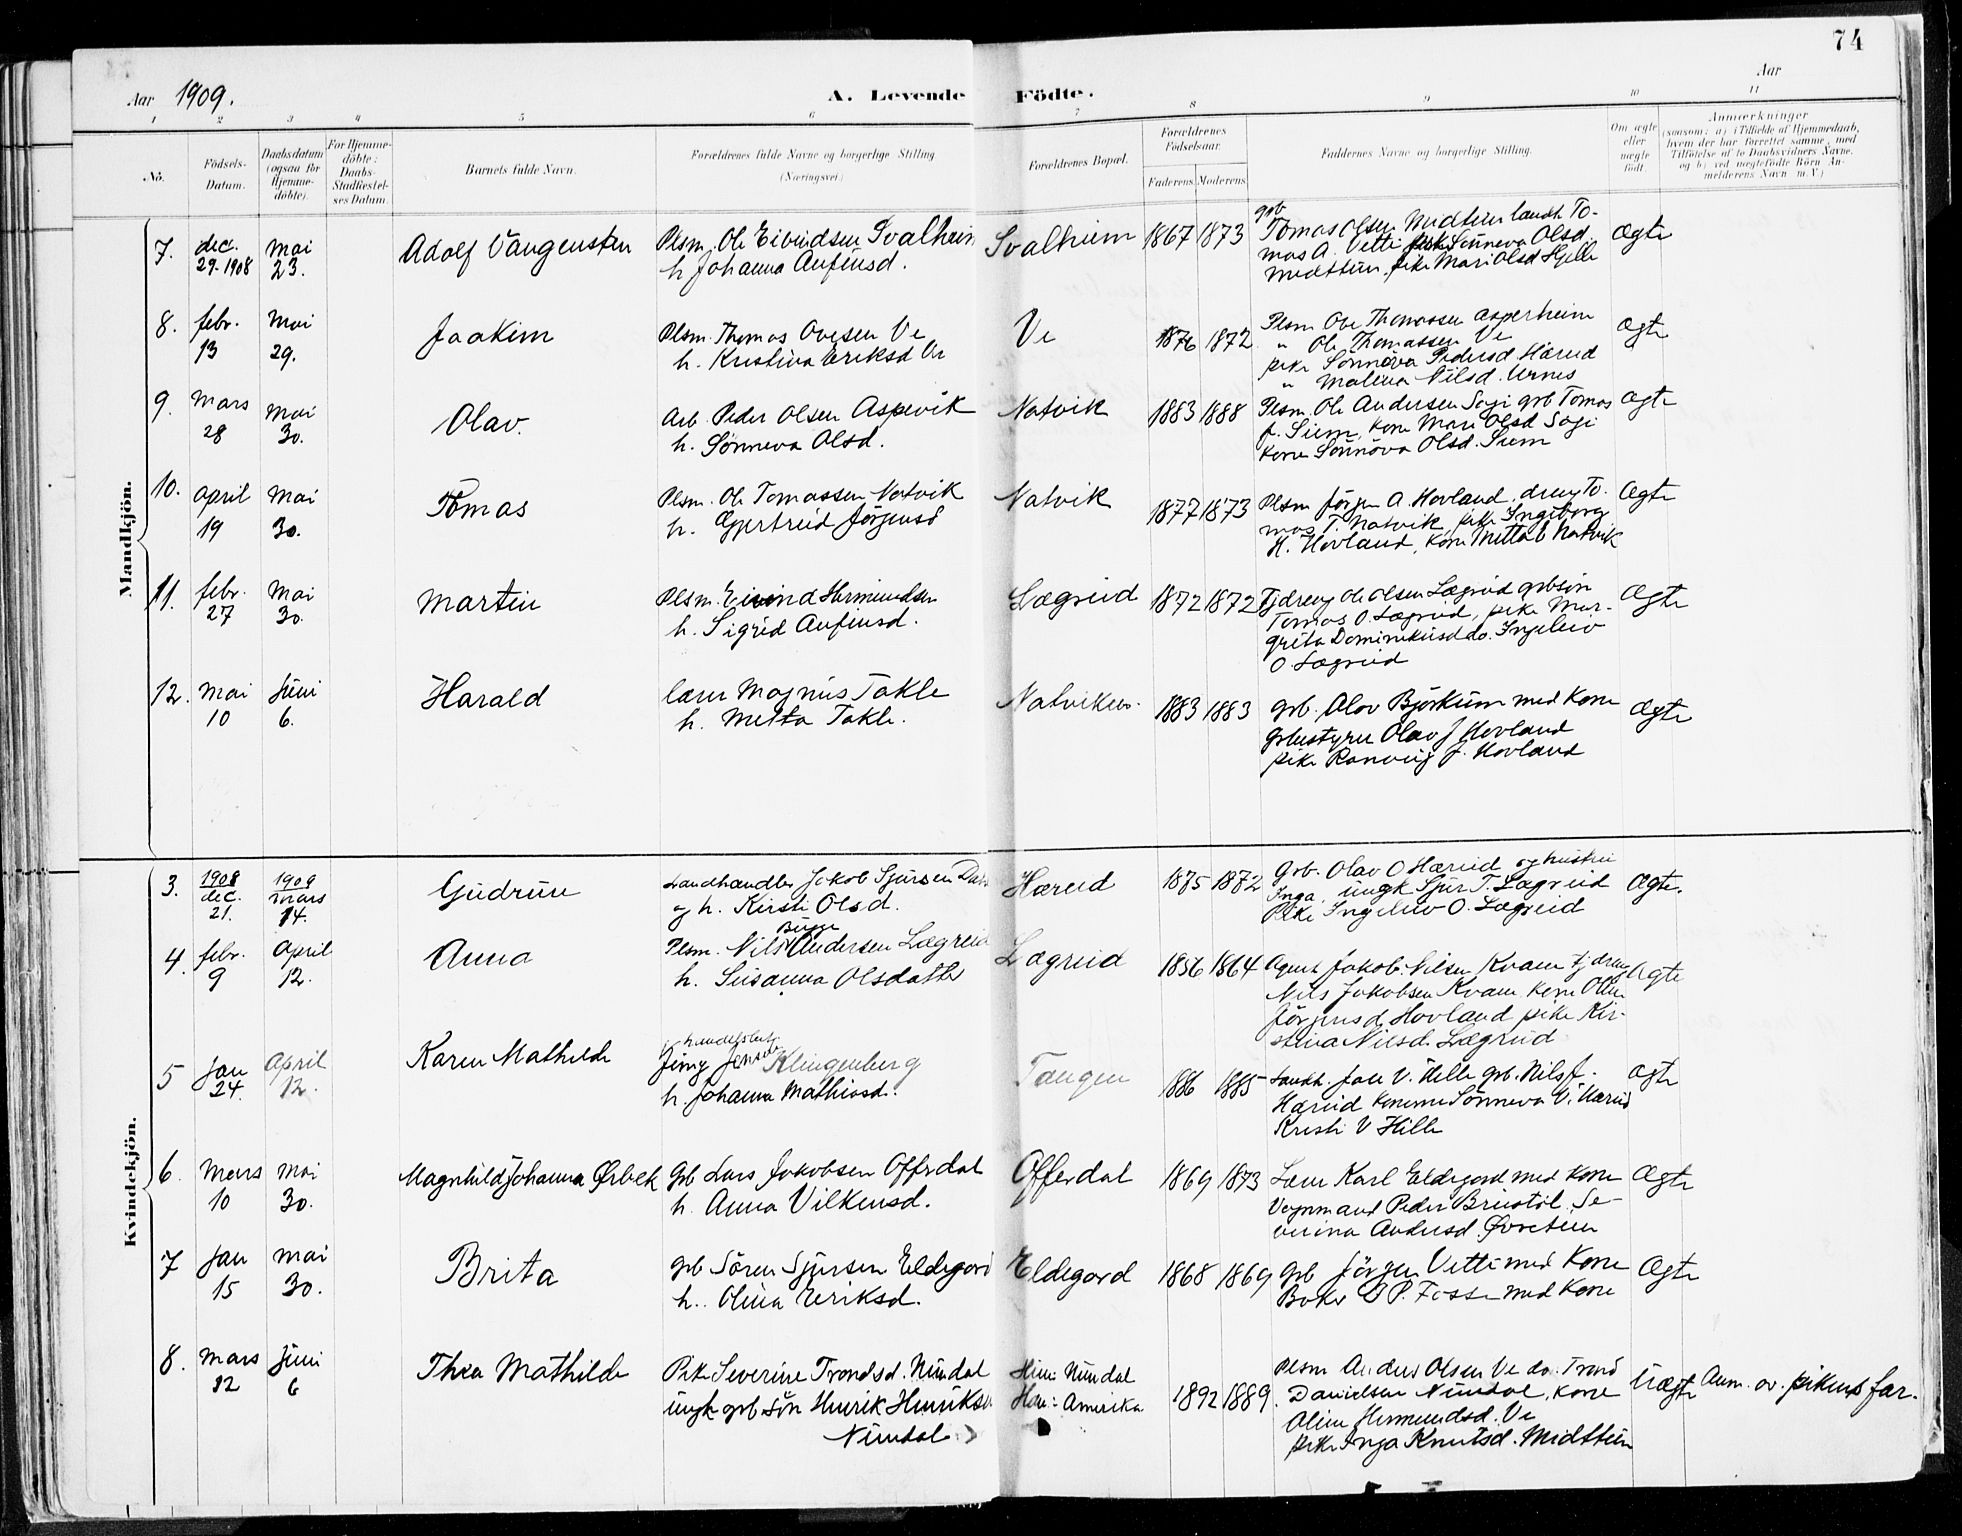 74
Aar 1909.
A. Levende Födte.
Aar
1 2 3 4 5 6 7 8 9 10 11
No.
Födsels-Datum.
Daabsdatum (ogsaa for Hjemmedöbte).
For Hjemmedöbte: Daabs-Stadfæstelses Datum.
Barnets fulde Navn.
Forældrenes fulde Navne og borgerlige Stilling
(Næringsvei)
Forældrenes Bopæl.
Forældrenes Födselsaar.
Faderens Moderens
Faddernes Navne og borgerlige Stilling.
Om ægte eller uægte födt.
Anmærkninger
(saasom: a) i Tilfælde af Hjemmedaab,
hvem der har forrettet samme, med
Tilföielse af to Daabsvidners Navne,
og b) ved uegtefödte Börn Anmelderens Navn m. V.)
Mandkjön.
7. dec. 29-1908 mai 23. Adolf Vangensten
Plsm. Ole Eivindsen Svalheim
h. Johanna Anfinsd.
Svalheim 1867 1873
grb
Tomas Olsen Midttun landh. To-
mas A. Vetti pike Sönneva Olsd.
Midttun, pike Mari Olsd Hjelle
Ægte
8. febr. 13 Mai 29. Joakim
Plsm. Thomas Ovesen Ve
h. Kristina Eriksd Ve
Ve 1876 1872
Plsm Ove Thomassen Asperheim
" Ole Thomassen Ve
pike Sönnöva Pedersd Hæreid
" Malena Nilsd. Urnes
Ægte
9. Mars 28 Mai 30. Olav.
Arb. Peder Olsen Aspevik
h. Sönneva Olsd.
Natvik 1883 1888
Plsm. Ole Andersen Sogi grb Tomas
J. Siem, kone Mari Olsd Sogi
kone Sönnöva Olsd. Siem
Ægte
10. april 19 Mai 30. Tomas
Plsm. Ole Tomassen Natvik
h. Gjertrud Jörgensd
Natvik 1877 1873
Plsm Jörgen A. Hovland, dreng To-
mas T. Natvik, pike Ingeborg
H. Hovland, kone Metta E Natvik
Ægte
11. febr. 27 Mai 30. Martin
Plsm. Eivind Hermundsen
h. Sigrid Anfinsd.
Lægreid 1872 1872
Tjdreng Ole Olsen Lægreid grbsön
Tomas O. Lægreid, pike Mar-
greta Dominikusd do. Ingeleiv
O. Lægreid
Ægte
12. Mai 10 Juni 6. Harald
lærer Magnus Takle
h. Metta Takle.
Natviken. 1883 1883
grb. Olav Björkum med kone
grbestyrer Olav J Hovland
pike Ranveig J. Hovland
Ægte
Kvindekjön.
3. 1908 dec. 21. 1909 mars 14. Gudrun
Landhandler Jakob Sjursen
og h. Kirsti Olsd.
Hæreid 1875 1872
Grb. Olav O Hæreid og hustru
Inga, ungk Sjur T. Lægreid
Pike Ingeleiv O. Lægreid
Ægte.
4. febr. 9 April 12. Anna
Bugge
Plsm. Nils Andersen Lægreid
h. Susanna Olsdatter
Lægreid 1856 1864
Agent Jakob Nilsen Kvam tjdreng
Nils Jakobsen Kvam, kone
Jörgensd Hovland pike Kir-
stina Nilsd. Lægreid
Ægte
5 Jan 24. April 12. Karen Mathilde
Jensen Klingenberg
h. Johanna Mathiasd.
Tangen 1886 1885
Landh. Jon V. Helle grb. Nils J.
Hæreid konerne Sönneva V. Hæreid
Kristi V Hille
Ægte
6. Mars 10 Mai 30. Magnhild Johanna Ørbek
Grb Lars Jakobsen Offerdal
h. Anna Vilkensd.
Offerdal 1869 1873
Lærer Karl Eldegard med kone
Peder Se-
verina Andersd. Øvretun
Ægte
7 Jan 15 Mai 30. Brita
grb Sören Sjursen Eldegard
h. Olina Eriksd.
Eldegard 1868 1869
grb Jörgen Vetti med kone
P. Fosse med kone
Ægte
8. Mars 12 Juni 6 Thea Mathilde
Pike Severine Trondsd. Nundal
ungk grb sön Henrik Henriksen
Nundal
Hun: Nundal
Han: Amerika
1892 1889.
Plsm Anders Olsen Ve do. Trond
Danielsen Nundal, kone
Oline Hermundsd. Ve
pike Inga Knutsd. Midttun
Uægte
Anm. av pikens far.